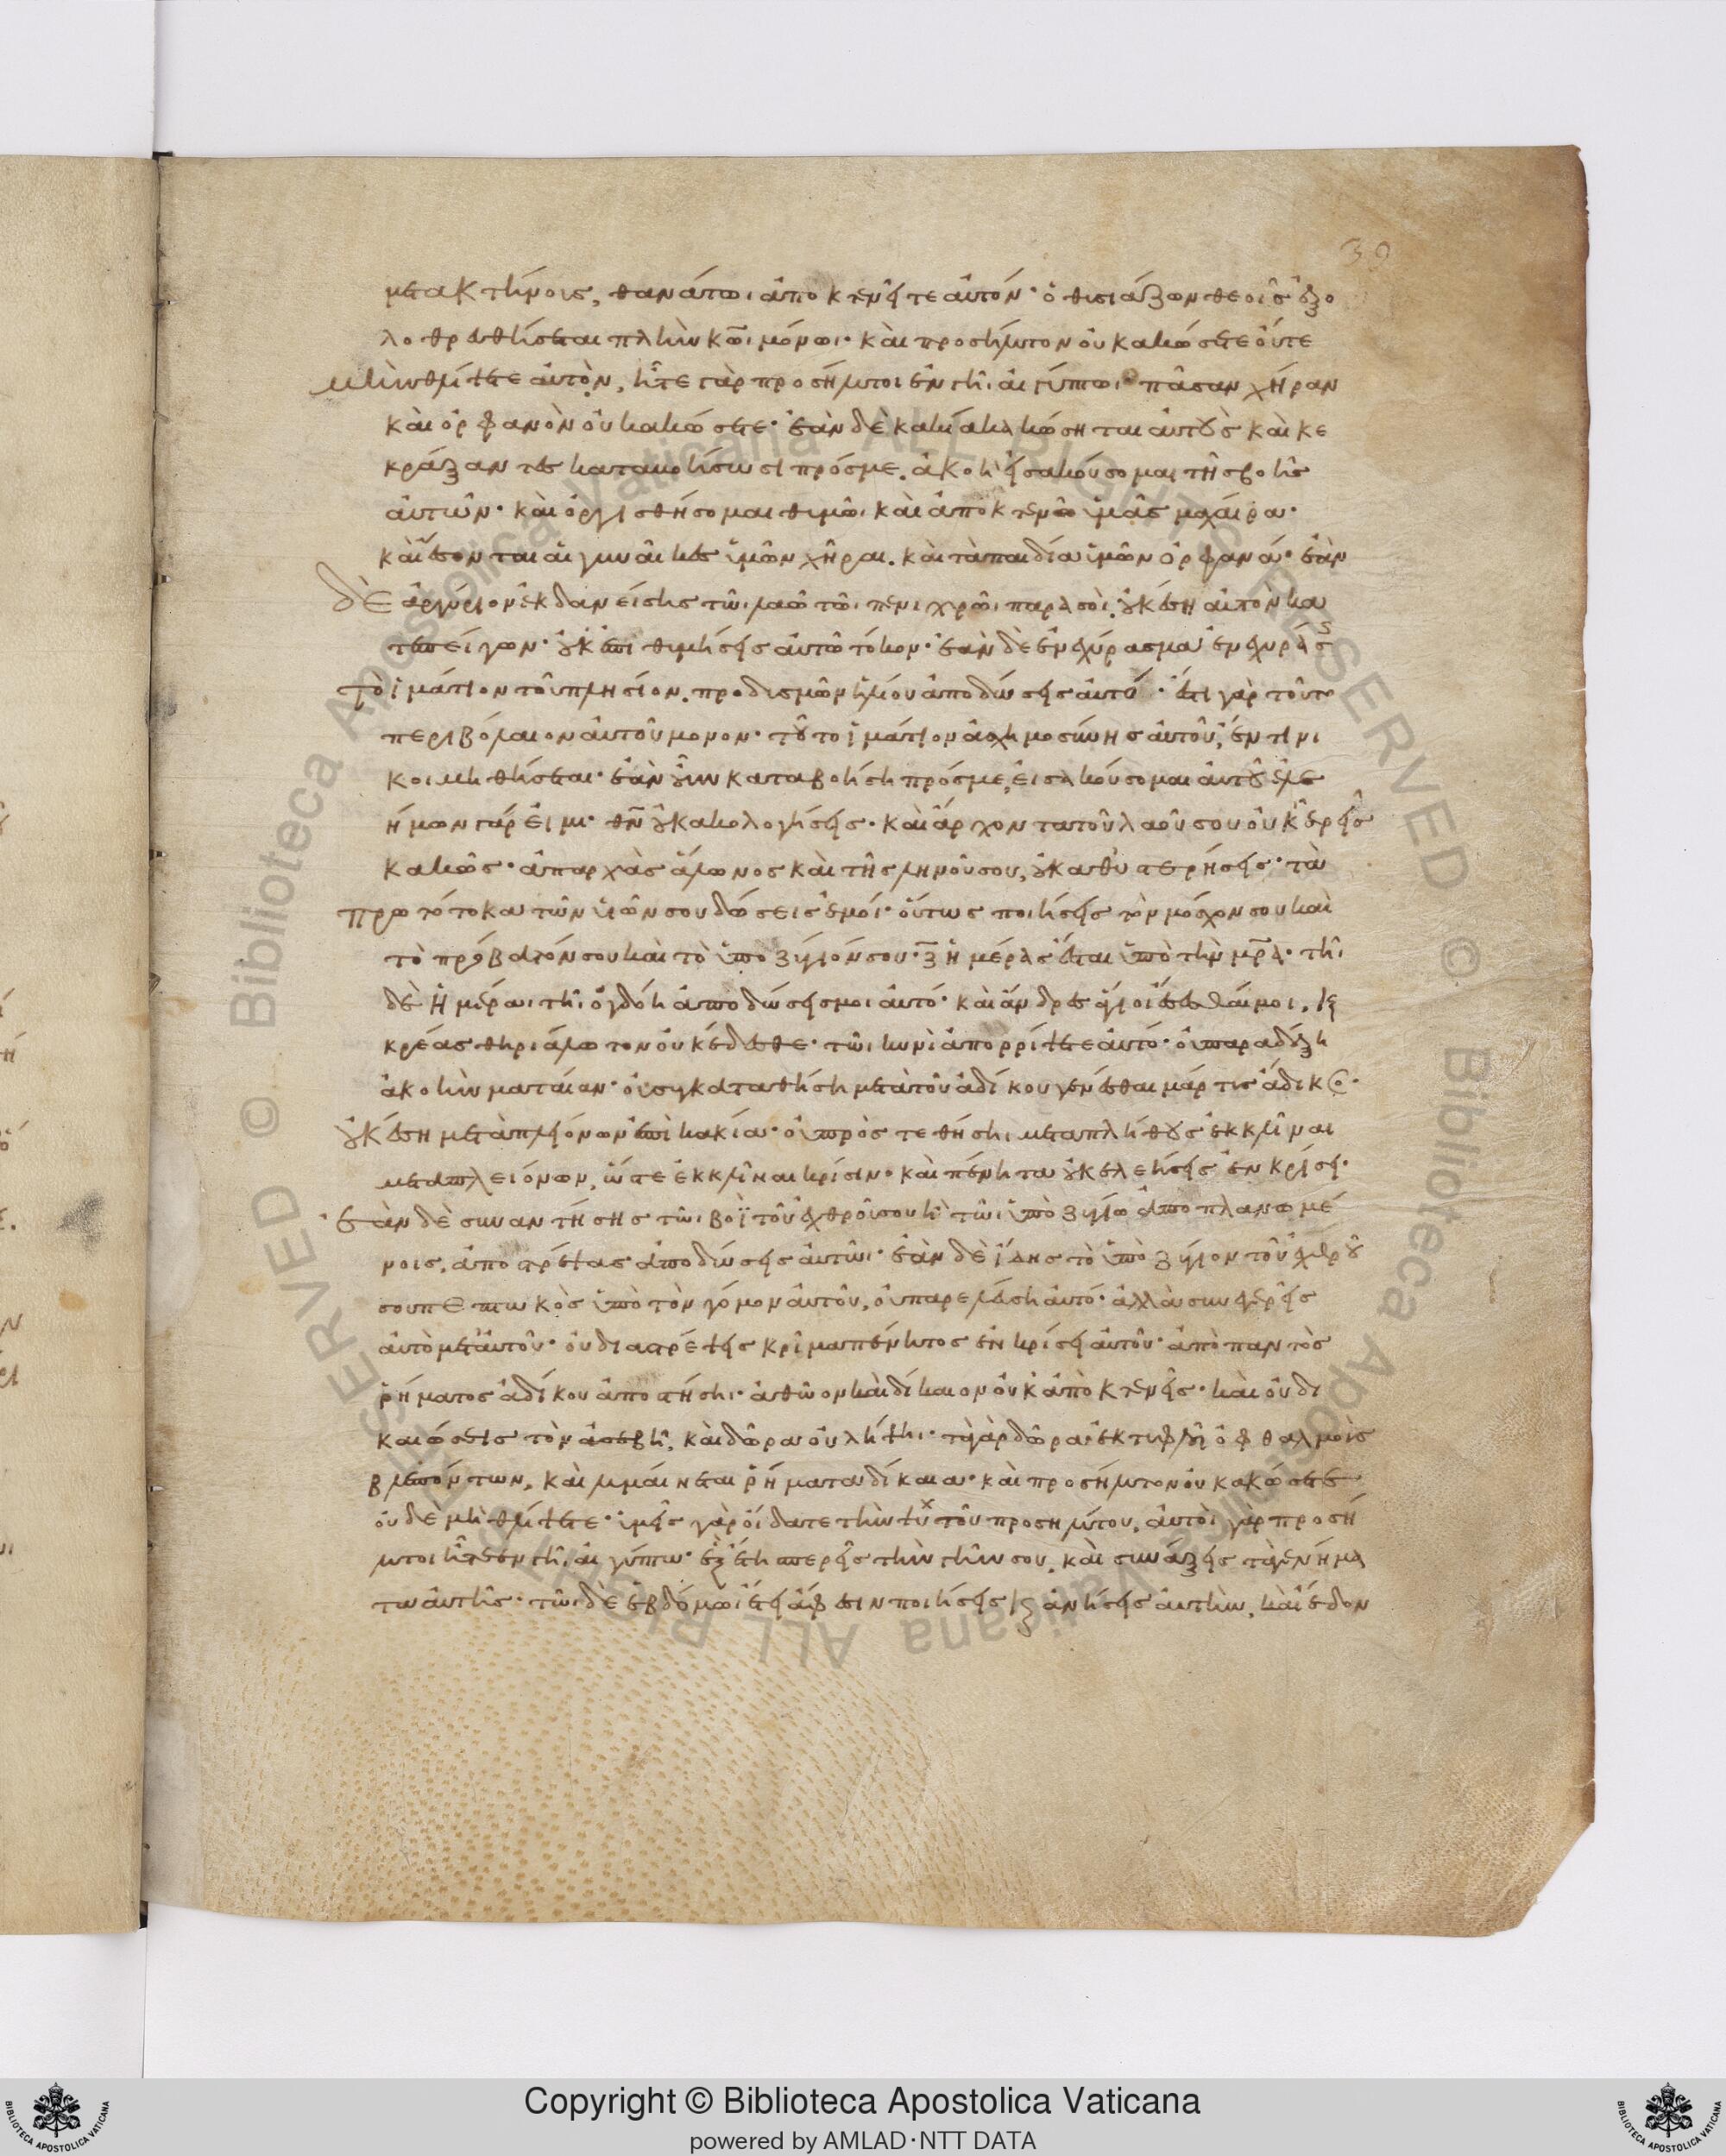 39
μετα κτήνους, θανάτωι ἀποκτενεῖτε αὐτόν· ὁ θυσιάζων θεοῖς ἐξο
λοθρευθήσεται πλὴν κῶι μόνωι· καὶ προσήλυτον οὐ κακώσετε οὔτε
μὴν θλίψετε αὐτὸν, ἦτε γὰρ προσήλυτοι ἐν τῆι αἰγύπτωι· πᾶσαν χήραν
καὶ ὀρφανὸν οὐ κακώσετε· ἐὰν δὲ κακίαι κακώσηται αὐτοὺς καὶ κε
κράξαντες καταβοήσωσι πρός με. ἀκοῆ εἰσακούσομαι τῆς βοῆς
αὐτῶν· καὶ ὀργισθήσομαι θυμῶι καὶ ἀποκτενῶ ὑμᾶς μαχαίρα·
καὶ ἔσονται αἱ γυναῖκες ὑμῶν χῆραι. καὶ τὰ παιδία ὑμῶν ὀρφανά· ἐὰν
δὲ ἀργύριον ἐκδανείσης τῶι λαῶ τῶι πενιχρῶι παρὰ σοὶ. οὐκ ἔση αὐτὸν κα
τεπείγων· οὐκ ἐπιθυμήσεις αὐτῶ τόκον· ἐὰν δὲ ἐνεχύρασμα ἐνεχυράσς
τὸ ἱμάτιον τοῦ πλησίον. πρὸ δυσμῶν ἡλίου ἀποδώσεις αὐτό· ἔστι γὰρ τοῦτο
περιβόλαιον αὐτοῦ μονον· τοῦτο ἱμάτιον ἀσχημοσύνης αὐτοῦ, ἐν τίνι
κοιμηθήσεται· ἐὰν οὖν καταβοήση πρός με, εἰσακούσομαι αὐτοῦ ἐλε
ήμων γάρ εἰμι· θὺ οὐ κακολογήσεις· καὶ ἄρχοντα τοῦ λαοῦ σου οὐκ ἐρεῖς
κακῶς· ἀπαρχὰς ἅλωνος καὶ τῆς ληνοῦ σου, οὐ καθυστερήσεις· τὰ
πρωτότοκα τῶν υἱῶν σου δώσεις ἐμοί· οὕτως ποιήσεις τὸν μόσχον σου καὶ
τὸ πρόβατόν σου καὶ τὸ ὑποζύγιόν σου· ζ ἡμέρας ἔσται ὑπὸ τὴν μρα· τῆι
δὲ ἡμέραι τῆι ὀγδόη ἀποδώσεις μοι αὐτό· καὶ ἄνδρες ἅγιοι ἔσεσθαί μοι. κ
κρέας θηριάλωτον οὐκ ἔδεσθε· τῶι κυνὶ ἀπορρίψετε αὐτό· οὐ παραδέξη
ἀκοὴν ματαίαν· οὐ συγκαταθήση μετὰ τοῦ ἀδίκου γενέσθαι μάρτυς ἄδικος·
οὐκ ἔση μετὰ πλειόνων ἐπὶ κακία· οὐ προστεθήσηι μετα πλήθους ἐκκλῖναι
μετα πλειόνων, ὥστε ἐκκλῖναι κρίσιν· καὶ πένητα οὐκ ἐλεήσεις ἐν κρίσει·
ἐὰν δὲ συναντήσης τῶι βοῒ τοῦ ἐχθροῦ σου ἢ τῶι ὑποζυγίω ἀποπλανωμέ
νοις, ἀποστρέψας ἀποδώσεις αὐτῶι· ἐὰν δὲ ἴδης τὸ ὑποζύγιον τοῦ ἐχθροῦ
σου πεπτωκὸς ὑπὸ τὸν γόμον αὐτοῦ, οὐ παρελεύση αὐτό· ἀλλὰ συνερεῖς
αὐτὸ μετ' αὐτοῦ· οὐ διαστρέψεις κρίμα πένητος ἐν κρίσει αὐτοῦ· ἀπὸ παντὸς
ῥήματος ἀδίκου ἀποστήσηι· ἀθῶον καὶ δίκαιον οὐκ ἀποκτενεῖς· καὶ οὐ δι
καιώσεις τὸν ἀσεβῆ, καὶ δῶρα οὐ λήψηι· τὰ γὰρ δῶρα ἐκτυφλοῖ ὀφθαλμοὺς
βλεπόντων, καὶ λυμαίνεται ῥήματα δίκαια· καὶ προσήλυτον οὐ κακώσετε
οὐδὲ μὴ θλίψετε· ὑμεῖς γὰρ οἴδατε τὴν ψυχ τοῦ προσηλύτου, αὐτοὶ γὰρ προσή
λυτοι ἦτε ἐν τῆι αἰγύπτω· ἓξ ἔτη σπερεῖς τὴν γῆν σου, καὶ συνάξεις τὰ γενήμα
τα αὐτῆς· τῶι δὲ ἑβδόμωι ἔτει ἄφεσιν ποιήσεις κ ἀνήσεις αὐτὴν, καὶ ἔδον
Copyright © Biblioteca Apostolica Vaticana
powered by AMLAD·NTT DATA